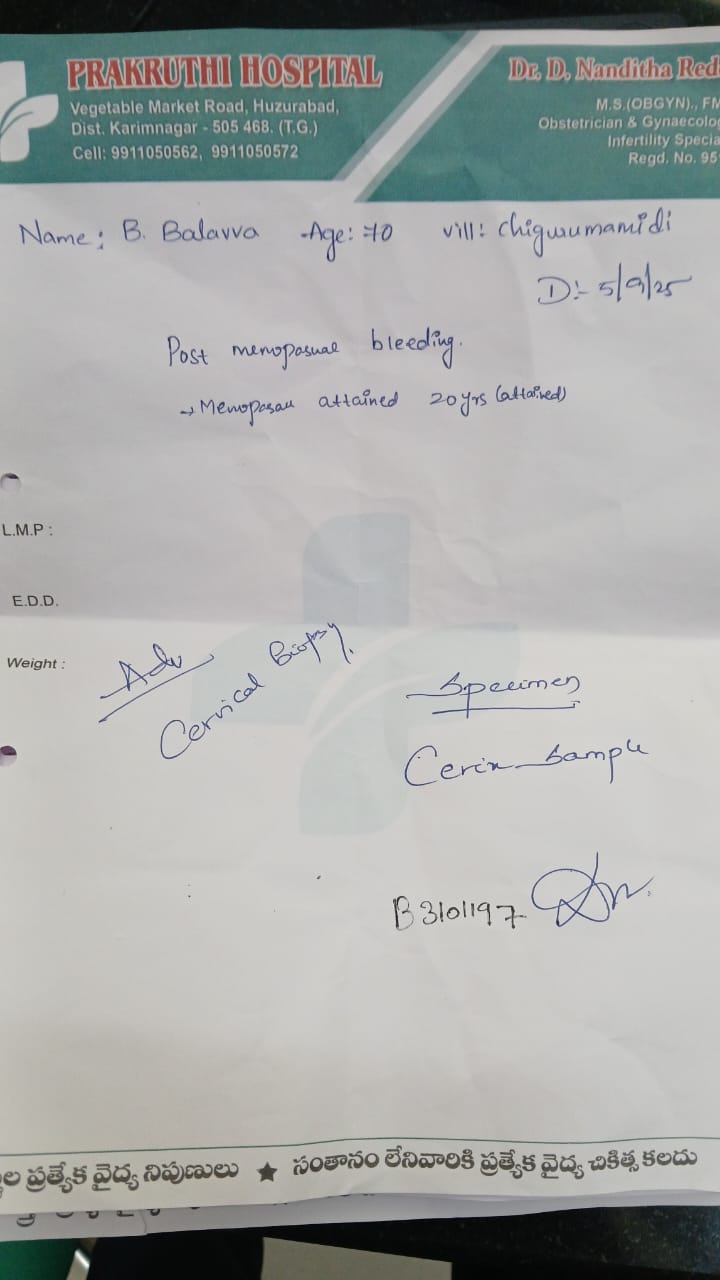 PRAKRUTHI HOSPITAL
Vegetable Market Road, Huzurabad,
Dist. Karimnagar - 505 468. (T.G.)
Cell: 9911050562, 9911050572
Dr. D. Nanditha Red
M.S.(OBGYN)., FM
Obstetrician & Gynaecolog
Infertility Specia
Regd. No. 95
Name: B. Balavva Age: 70 vill: Chigurumamidi
D:- 5/9/25
Post menopasual bleeding.
→ Menopasau attained 20yrs (attained)
L.M.P :
E.D.D.
Weight :
Adv
Cervical Biopsy.
Specimen
Cerix Sample
B3101197
ల ప్రత్యేక వైద్య నిపుణులు ★ సంతానం లేనివారికి ప్రత్యేక వైద్య చికిత్స కలదు